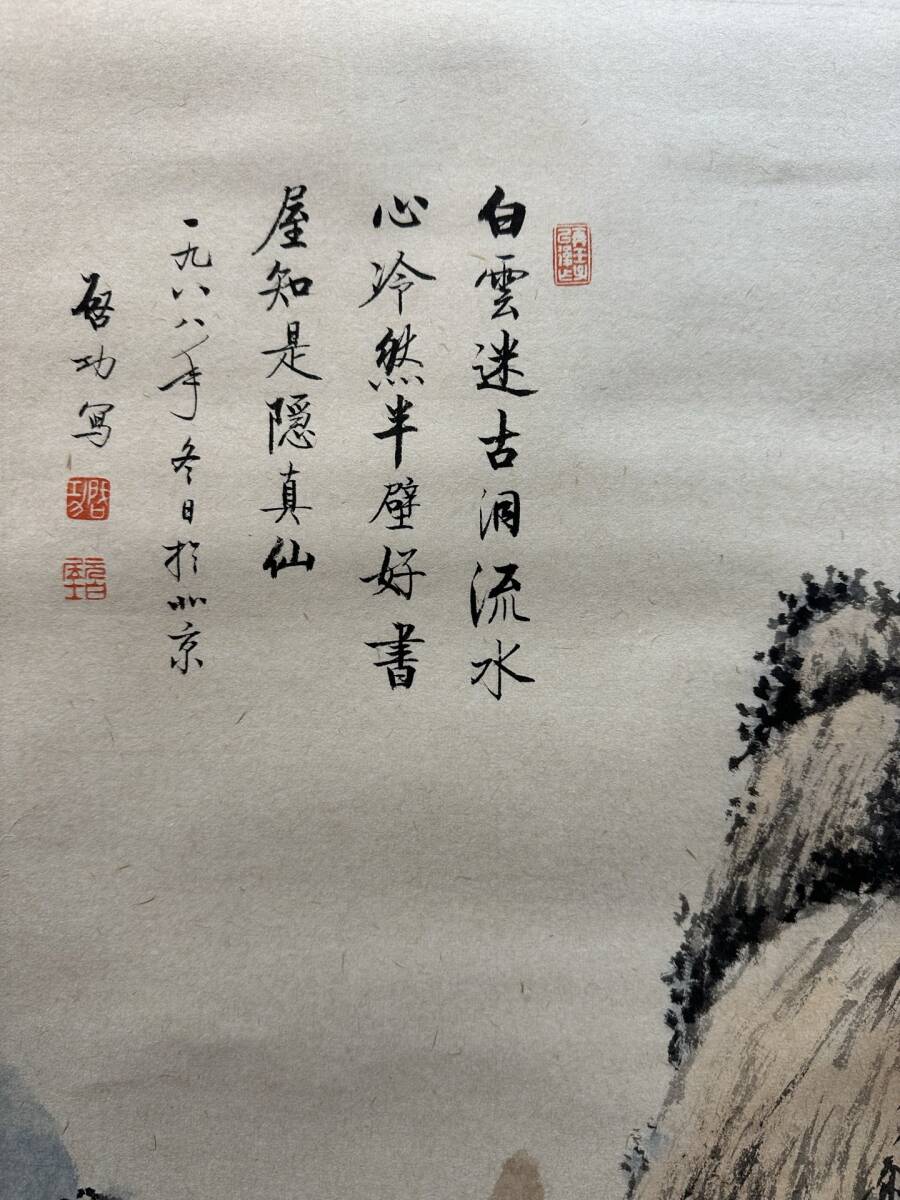 白雲迷古洞流水
心冷然半壁好書
屋知是隱真仙
一九八八年冬日於北京
啓功寫
啓功
元白